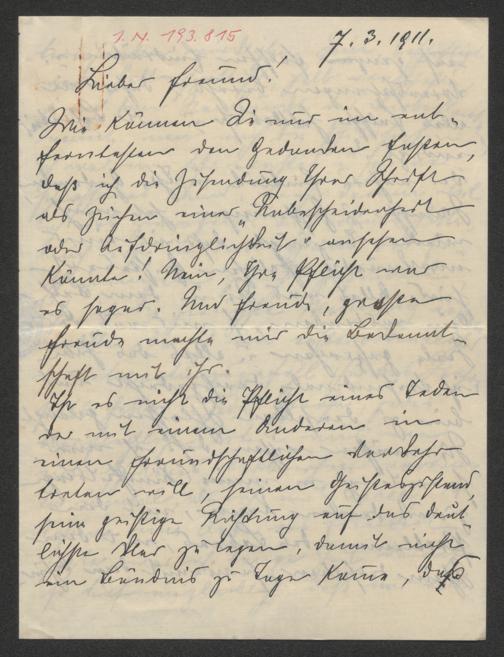 I. N. 193.815
7. 3. 1911.
Lieber Freund!
Wie können Sie nur im ent-
ferntesten den Gedanken fassen,
daß ich die Zusendung Ihrer Schrift
als Zeichen einer „Unbescheidenheit
oder Aufdringlichkeit" ansehen
könnte! Nein, Ihre Pflicht war
es sogar. Und Freude, große
Freude machte mir die Bekannt-
schaft mit ihr.
Ist es nicht die Pflicht eines Jeden
der mit einem Anderen in
einen freundschaftlichen Verkehr
treten will, seinen Geisteszustand,
seine geistige Richtung auf das deut-
lichste klar zu legen, damit nicht
ein Bündnis zu Tage komme, das